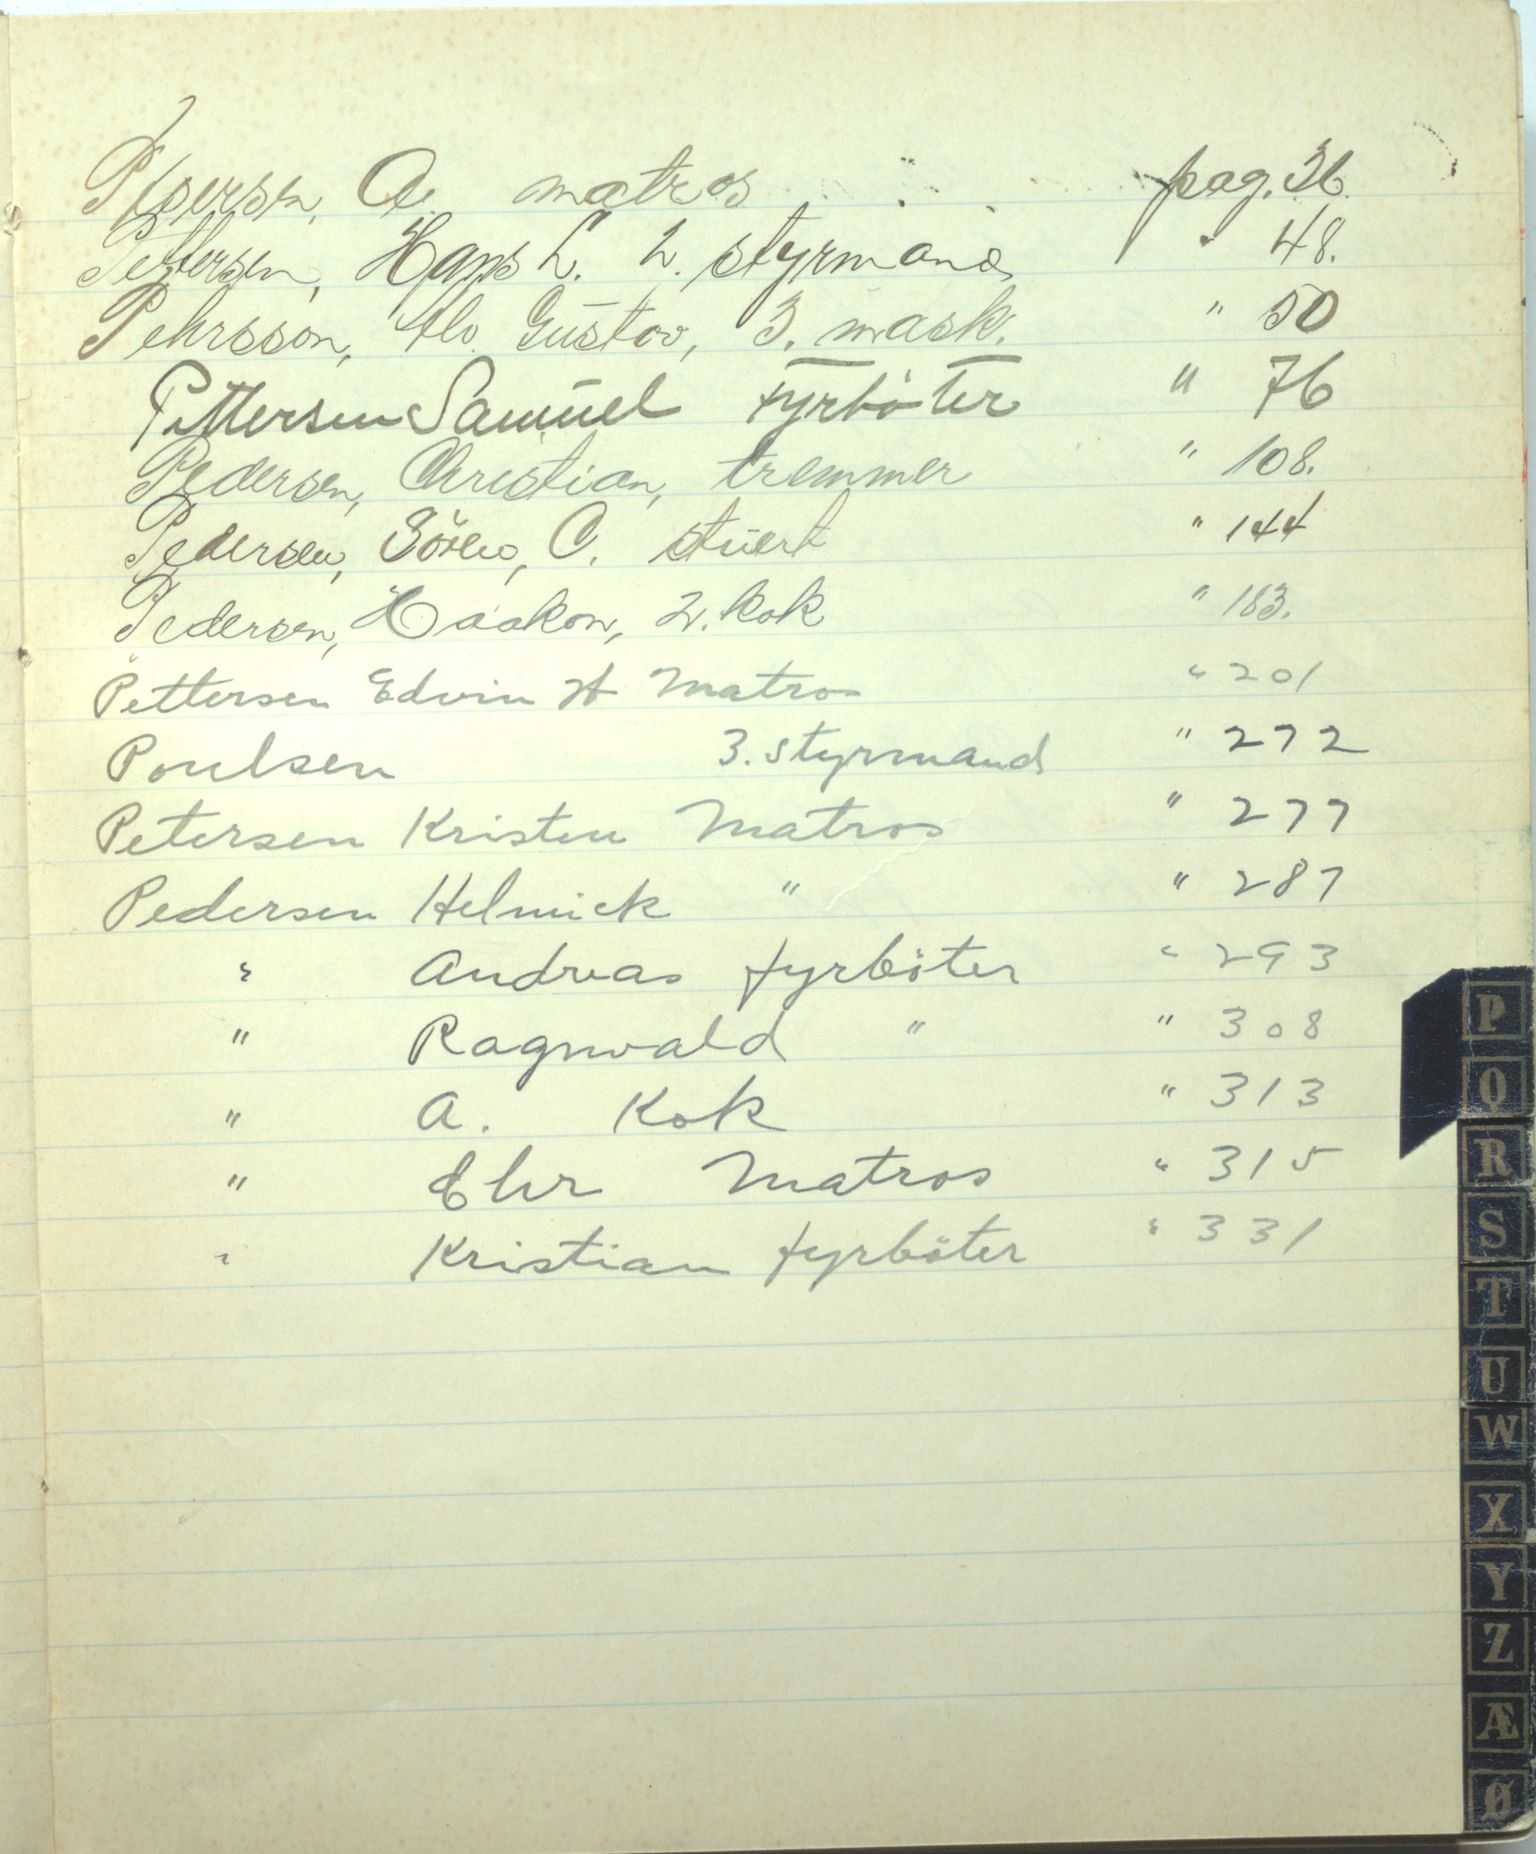 A. matros pag. 36.
Pettersen, Hans L. 2. styrmand " 48.
Pehrsson, Gustav, 3. mask. " 50
Pettersen Samuel fyrböter " 76
Pedersen, Christian, tremmer " 108.
Pedersen, Sören, C. stuert " 144
Pedersen, Haakon, 2. kok " 183.
Pettersen Edvin H Matros " 201
Poulsen 3. styrmand " 272
Petersen Kristen Matros " 277
Pedersen Helmick " " 287
" Andreas fyrböter " 293
" Ragnvald " " 308
" A. Kok " 313
" Ehr Matros " 315
" Kristian fyrböter " 331
P
Q
R
S
T
U
W
X
Y
Z
Æ
Ø